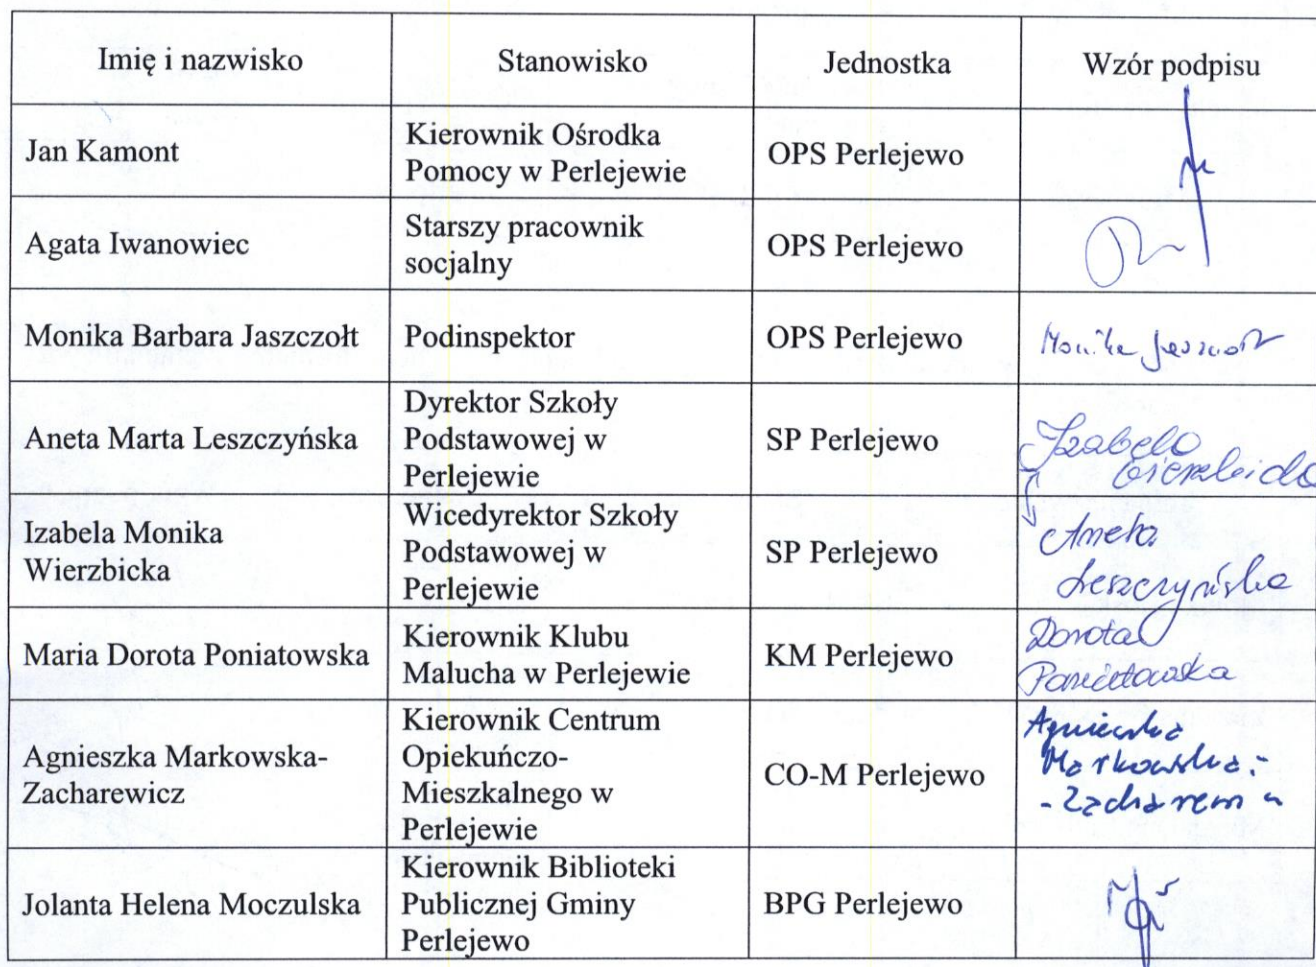 Imię i nazwisko
Stanowisko
Jednostka
Wzór podpisu
Jan Kamont
Kierownik Ośrodka
Pomocy w Perlejewie
OPS Perlejewo
Agata Iwanowiec
Starszy pracownik
socjalny
OPS Perlejewo
Monika Barbara Jaszczołt
Podinspektor
OPS Perlejewo
Monika
Aneta Marta Leszczyńska
Dyrektor Szkoły
Podstawowej w
Perlejewie
SP Perlejewo
Izabela
Izabela Monika
Wierzbicka
Wicedyrektor Szkoły
Podstawowej w
Perlejewie
SP Perlejewo
Aneta
Leszczyńska
Maria Dorota Poniatowska
Kierownik Klubu
Malucha w Perlejewie
KM Perlejewo
Dorota
Poniatowska
Agnieszka Markowska-
Zacharewicz
Kierownik Centrum
Opiekuńczo-
Mieszkalnego w
Perlejewie
CO-M Perlejewo
Agnieszka
Markowska-
Jolanta Helena Moczulska
Kierownik Biblioteki
Publicznej Gminy
Perlejewo
BPG Perlejewo